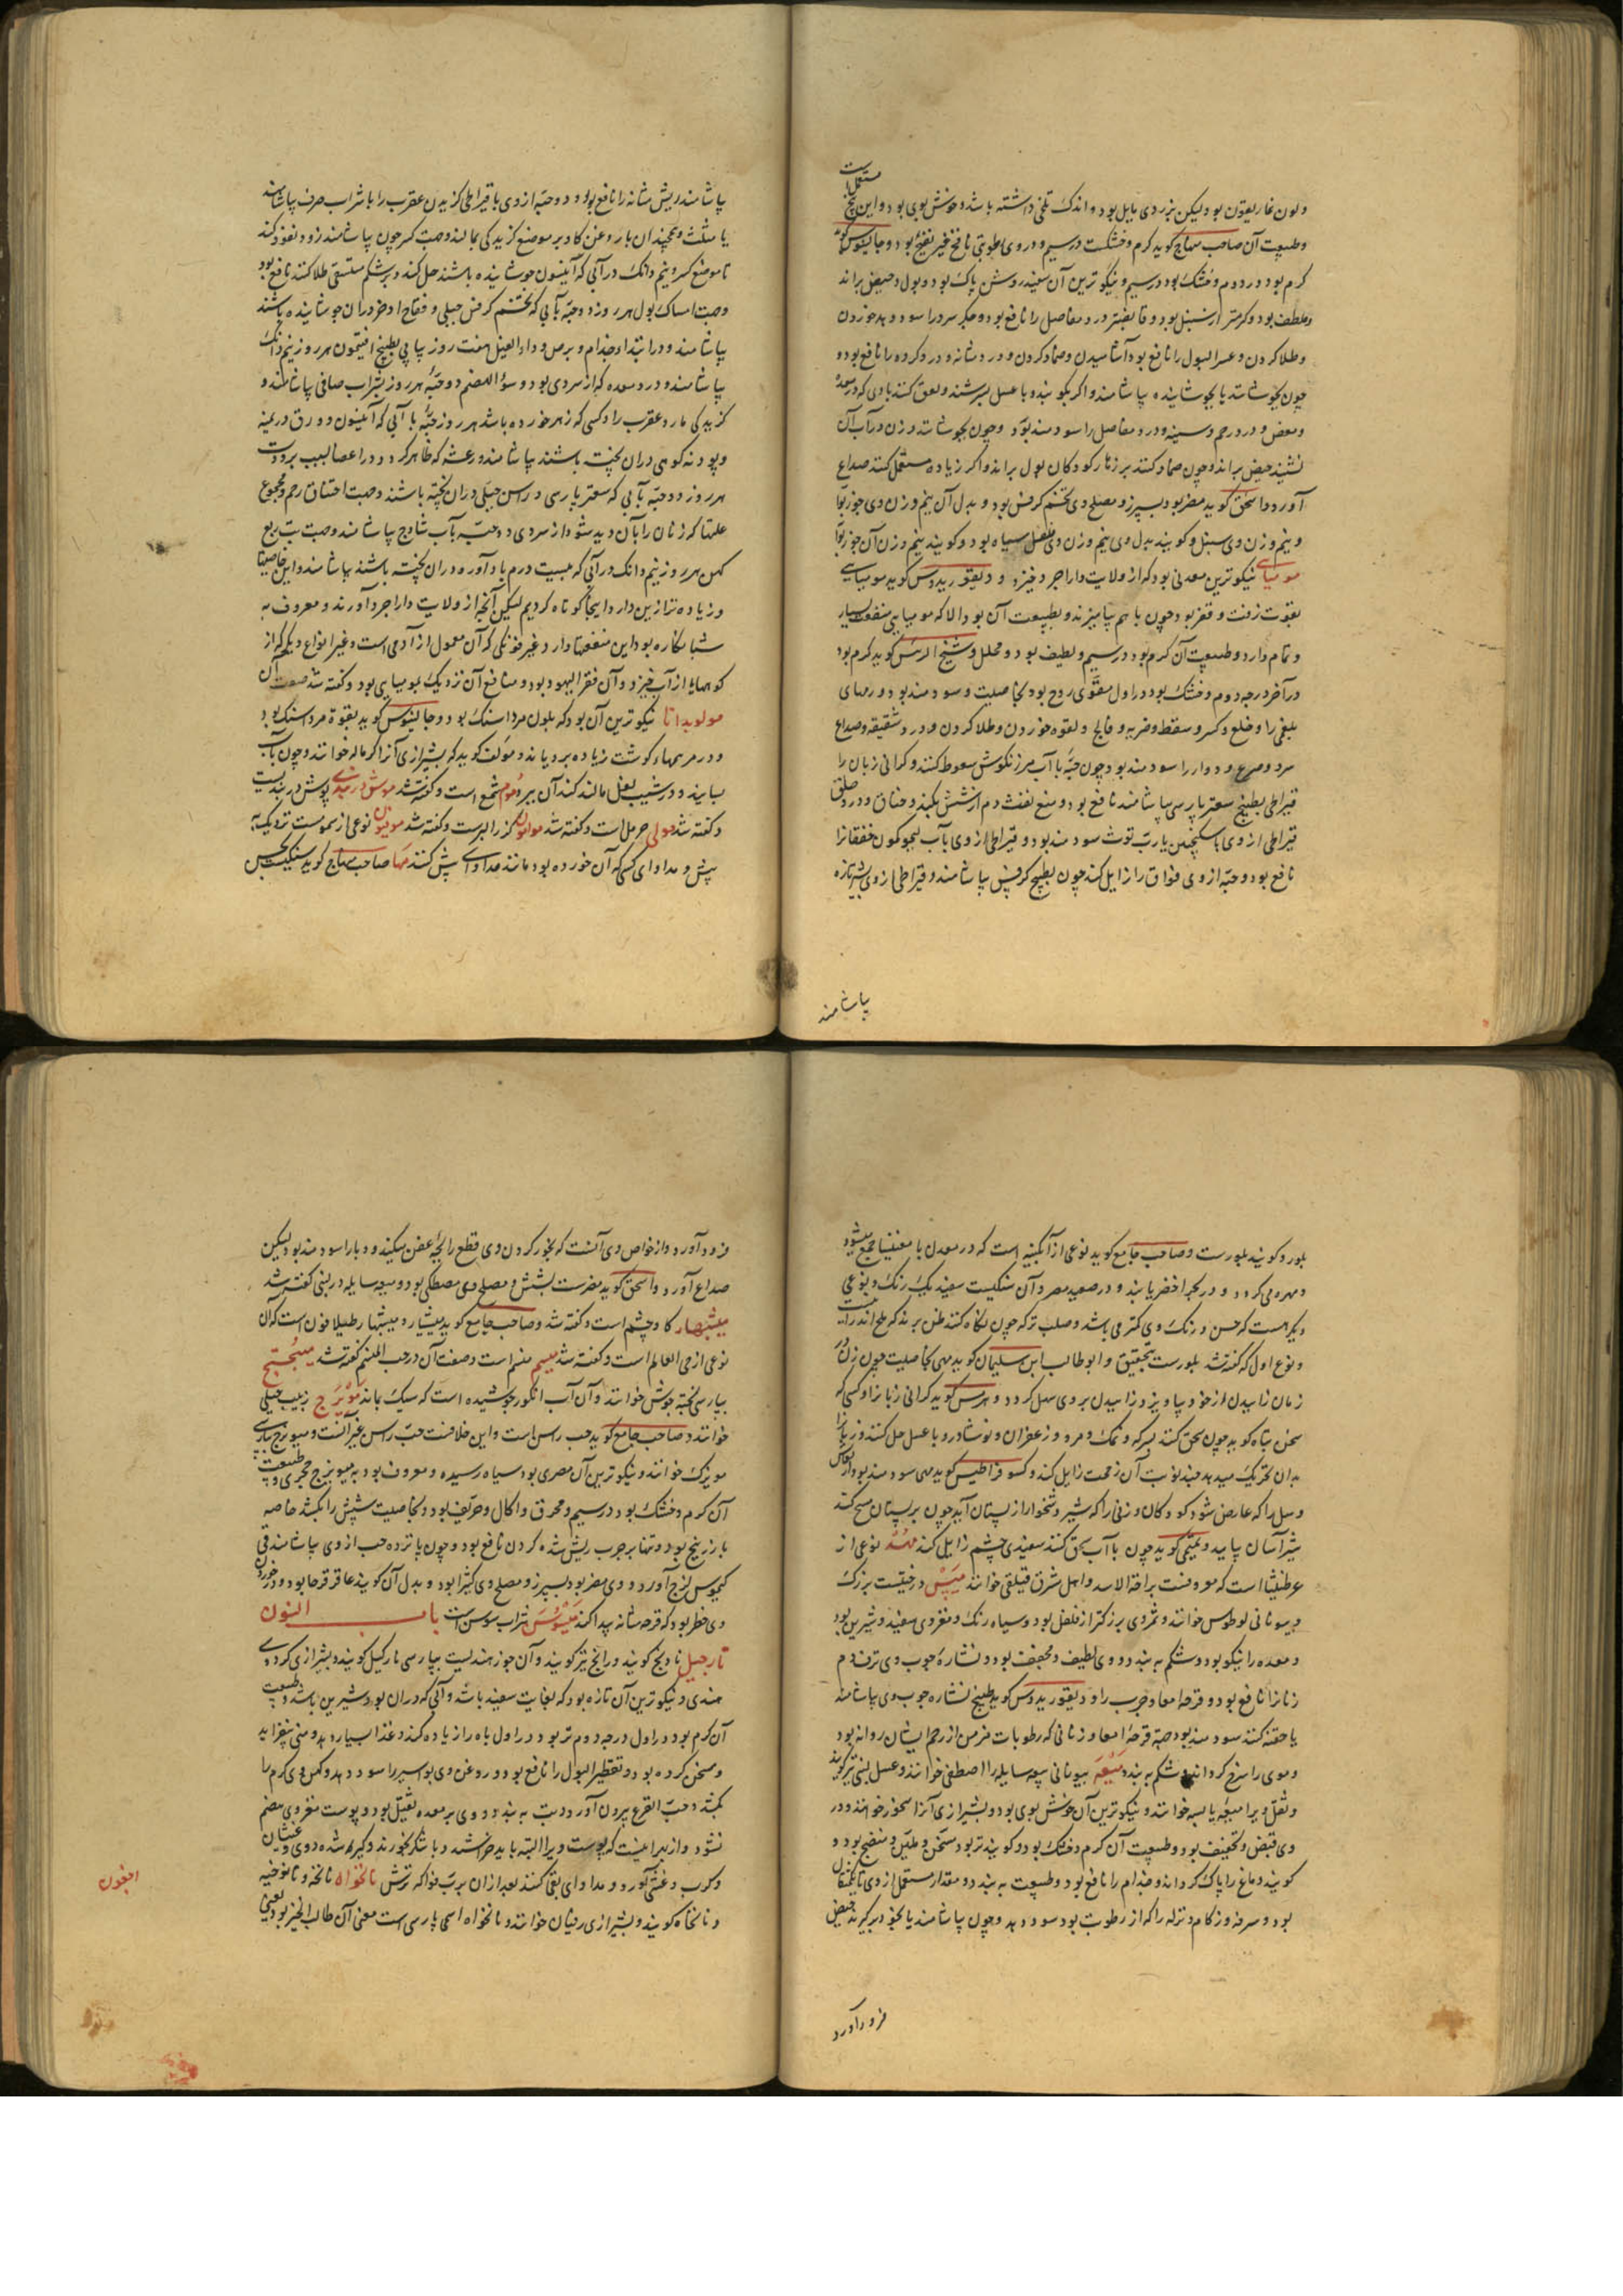 ولون غاریقون بود ولیکن بزردی مایل بود و اندک تلخی داشته باشد و خوش بوی بود و این بیخ مستعمل است
وطبیعت آن صاحب منهاج کوید کرم و خشکست در سیم و در وی رطوبتی نافخ غیر نضیج بود و جالینوس کوید
کرم بود در دوم و خشک بود در سیم و نیکوترین آن سفید روشن پاک بود و بول و حیض براند
وملطف بود و کرمتر از سنبل بود و قابضتر و درد مفاصل را نافع بود و جکر سرد را سود دهد خوردن
وطلا کردن و عسر البول را نافع بود آشامیدن وضماد کردن و درد مثانه و درد کرده را نافع بود و
چون بجوشانند یا بجوشانیده بیاشامند و اکر بکوبند و با عسل بسرشند و لعق کنند بادی که در معده
ومغص و درد رحم و سینه و درد مفاصل را سودمند بود وچون بجوشانند و زن در آب آن
نشیند حیض براند و چون ضماد کنند بر زهار کودکان بول براند و اکر زیاده مستعمل کنند صداع
آورد و اسحق کوید مضر بود بسپرز و مصلح وی تخم کرفس بود و بدل آن نیم وزن وی جوزبوا
و نیم وزن وی سنبل و کویند بدل وی نیم وزن وی فلفل سیاه بود و کویند نیم وزن آن جوزبوا
مومیای نیکوترین معدنی بود که از ولایت داراجرد خیزد و دیقوریدوس کوید مومیایی
بقوت زفت و قفر بود چون با هم بیامیزند و بطبیعت آن بود الا که مومیایی منفعت بسیار
و تمام دارد وطبیعت آن کرم بود در سیم ولطیف بود و محلل و شیخ الرئیس کوید کرم بود
در آخر درجه دوم و خشک بود در اول مقوی روح بود بخاصیت و سودمند بود ورمهای
بلغمی را وخلع و کسر و سقطه و ضربه و فالج و لقوه خوردن وطلا کردن و درد شقیقه و صداع
سرد و صرع و دوار را سودمند بود چون حبه با آب مرزنکوش سعوط کنند و کرانی زبان را
قیراطی بطبیخ سعتر پارسی بیاشامند نافع بود و منع نفث دم از شش بکند و خناق و درد حلق
قیراطی از وی با سکنجبین یا رب توث سودمند بود و قیراطی از وی بآب نیم کمون خفقانرا
نافع بود و حبه از وی فواق را زایل کند چون بطبیخ کرفس بیاشامند و قیراطی از وی بشیر تازه
بیاشامند
بیاشامند ریش مثانه را نافع بود و دو حبه از وی یا قیراطی کزیدن عقرب را با شراب صرف بیاشامند
یا مثلث و همچندان با روغن کاو بر موضع کزیدکی بمالند وجهت کسر چون بیاشامند زود نفوذ کند
تا موضع کسر و نیم دانک در آبی که آنیسون جوشانیده باشند حل کنند و بر شکم مستسقی طلا کنند نافع بود
وجهت امساک بول هر روز دو حبه بآبی که تخم کرفس جبلی و فقاح اذخر در آن جوشانیده باشند
بیاشامند و در ابتدا و جذام و برص و داء الفیل هفت روز پیاپی بطبیخ افتیمون هر روز نیم دانک
بیاشامند و درد معده که از سردی بود و سوء الهضم دو حبه هر روز بشراب صافی بیاشامند و
کزیدکی مار و عقرب را و کسی که زهر خورده باشد هر روز حبه با آبی که آنیسون و ورق درمنه
و پودنه کوهی در آن پخته باشند بیاشامند و رعشه که ظاهر کردد در اعصاب بسبب برودت
هر روز دو حبه بآبی که سعتر پارسی و راسن جبلی در آن پخته باشند وجهت اختناق رحم و مجموع
علتها که زنان را بآن دید شود از سردی دو حبه بآب شاوج بیاشامند وجهت تب ربع
کهن هر روز نیم دانک در آبی که بیست درم بادآورد در آن پخته باشند بیاشامند و این خاصیتها
و زیاده تر از این دارد اینجا کوتاه کردیم لیکن آنچه از ولایت داراجرد آورند و معروف به
شبانکاره بود این منفعتها دارد و غیر فرنکی که آن معمول از آدمی است وغیر انواع دیکر که از
کوهها با از آب خیزد و آن قفر الیهود بود و منافع آن نزدیک بمومیایی بود و کفته شد صفت آن
مولوبدانا نیکوترین آن بود که بلون مرداسنک بود و جالینوس کوید بقوة مرداسنک بود
و در مرهمها کوشت زیاده برویاند و مؤلف کوید که بشیرازی آنرا کرماله خوانند و چون بآب
بسایند و در شیب بغل مالند کند آن ببرد موم شمع است و کفته شد موش دربندی پوش دربندیست
و کفته شد مولی حرمل است و کفته شد مولولون کزر البرست و کفته شد مونیون نوعی از سموست نزدیک به
بیش و مداوای کسی که آن خورده بود مانند مداوای بیش کنند مها صاحب منهاج کوید سنکیست بحسن
بلور و کویند بلورست و صاحب جامع کوید نوعی از آبکینه است که در معدن با مغنیسیا جمع میشود
ومهره می کردد و در بحر اخضر یابند و در صعید مصر و آن سنکیست سفید یک رنک و نوعی
دیکر هست که حسن و رنک وی کمتر می باشد و صلب تر که چون نکاه کنند ظن برند که ملح اندرانیست
و نوع اول که کفته شد بلورست بتحقیق و ابو طالب ابن سلیمان کوید مهی بخاصیت چون زن در
زمان زاییدن از خود بیاویزد زاییدن بر وی سهل کردد و هرمس کوید کرانی زبانرا و کسی که
سخن تباه کوید چون سحق کنند بسرکه و نمک و مر و زعفران و نوشادر و با عسل حل کنند و زبانرا
بدان تحریک میدهد چند نوبت آن زحمت زایل کند و کسوفراطیس کوید مهی سودمند بود ارتعاش
وسل را که عارض شود کودکان و زنی را که شیر دشخوار از پستان آید چون بر پستان مسح کند
شیر آسان بیاید و تمیمی کوید چون با آب سحق کنند سفیدی چشم زایل کند مهد نوعی از
عرطنیثا است که معروفست براحة الاسد و اهل مشرق قیلقی خوانند میس درختیست بزرک
و بیونانی لوطوس خوانند و ثمر وی بزرکتر از فلفل بود و سیاه رنک و مغز وی سفید و شیرین بود
و معده را نیکو بود و شکم به بندد و وی لطیف و مجفف بود و نشاره چوب وی نزف دم
زنانرا نافع بود و قرحه امعا و جرب را و دیقوریدوس کوید طبیخ نشاره چوب وی بیاشامند
یا حقنه کنند سودمند بود جهة قرحه امعا و زنانی که رطوبات مزمن از رحم ایشان روانه بود
و موی را سرخ کرداند و شکم به بندد میعه بیونانی میعه سایله را اصطفی خوانند و عسل لبنی نیز کویند
و ثقل ویرا میعه یابسه خوانند و نیکوترین آن خوش بوی بود و بشیرازی آنرا سحور خوانند و در
وی قبض و تجفیف بود و طبیعت آن کرم و خشک بود و کویند تر بود مسخن و ملین و منضج بود و
کویند دماغ را پاک کرداند و جذام را نافع بود وطبیعت به بندد و مقدار مستعمل از وی تا یکمثقال
بود و سرفه و زکام و نزله را که از رطوبت بود سود دهد و چون بیاشامند یا بخود برکیرند حیض
فرود آورد
فرود آورد و از خواص وی آنست که بخور کردن وی قطع رایحه عفن میکند و وبا را سودمند بود لیکن
صداع آورد و اسحق کوید مضرست بشش و مصلح وی مصطکی بود و میعه سایله در لبنی کفته شد
میشبهار کاوچشم است و کفته شد و صاحب جامع کوید میشیار و میشبهار طیلافون است که آن
نوعی از حی العالم است و کفته شد میسم منسم است و صفت آن در حب المنسم کفته شد میبختج
بپارسی پخته جوش خوانند و آن آب انکور جوشیده است که سیک بماند میویزج زبیب جبلی
خوانند و صاحب جامع کوید حب راسن است و این خلافست حب راسن غیر آنست و میویزج بپارسی
مویزک خوانند و نیکوترین آن مصری بود سیاه رسیده و معروف بود به میویزج حجری و طبیعت
آن کرم و خشک بود در سیم و محرق و اکال و حریف بود و بخاصیت شپش را بکشد خاصه
با زرنیخ بود و تنها بر جرب ریش شده کردن نافع بود و چون پانزده حب از وی بیاشامند قی
کیموس لزج آورد و وی مضر بود بسپرز و مصلح وی کثیرا بود و بدل آن کویند عاقرقرحا بود و در خوردن
وی خطر بود که قرحه مثانه پیدا کند میسوسن شراب سوسن است باب النون
نارجیل نارنج کویند و رانج نیز کویند و آن جوز هندیست بپارسی نارکیل کویند و بشیرازی کردوی
هندی و نیکوترین آن تازه بود که بغایت سفید باشد و آبی که در آن بود شیرین باشد و طبیعت
آن کرم بود در اول درجه دوم و تر بود در اول باه را زیاده کند و غذا بسیار دهد و منی بیفزاید
ومسخن کرده بود و تقطیر البول را نافع بود و روغن وی بواسیر را سود دهد و کهن وی کرم را
بکشد و حب القرع بیرون آورد و تب به بندد و وی بر معده ثقیل بود و پوست مغز وی هضم
نشود و از بهر اینست که پوست ویرا البته باید خراشند و با شکر بخورند و کهن شده وی غشیان
و کرب و غشی آورد و مداوای بقی کنند بعد از آن برب فواکه ترش نانخواه نانخه و نانوخیه
و نانخاه کویند و بشیرازی زنیان خوانند و نانخواه اسمی پارسی است معنی آن طالب الخبز بود یعنی
افیون